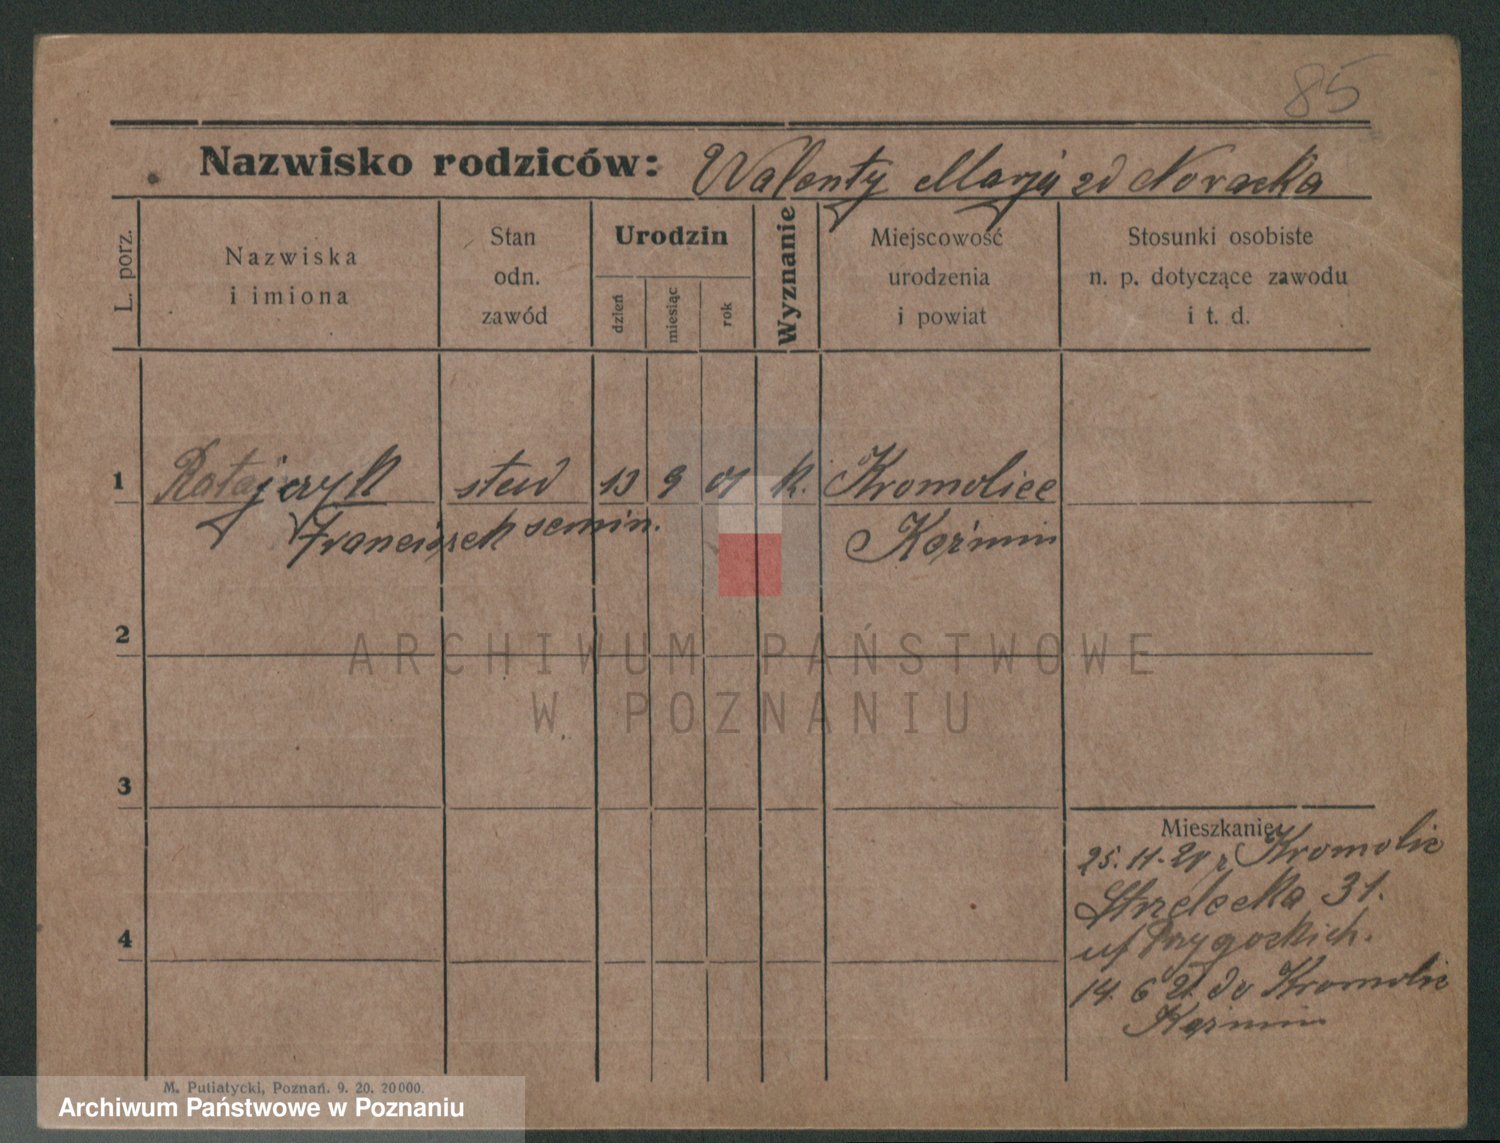 85
Nazwisko rodziców: Walenty Marja zd Noracka
L. porz.
Nazwiska
i imiona
Stan
odn.
zawód
Urodzin
dzień
miesiąc
rok
Wyznanie
Miejscowość
urodzenia
i powiat
Stosunki osobiste
n. p. dotyczące zawodu
i t. d.
1 Ratajczyk stud 13 9 01 k. Kromolice
Franciszek semin. Koźmin
2
ARCHIWUM PAŃSTWOWE
W POZNANIU
3
Mieszkanie
25.11.20 z Kromolic
Strzelecka 31.
u/ Przygockich.
4
14. 6 21 do Kromolic
Koźmin
M. Putiatycki, Poznań. 9. 20. 20000.
Archiwum Państwowe w Poznaniu